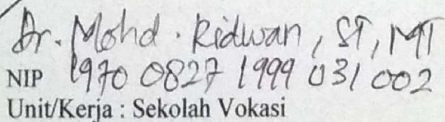 Dr. Mohd. Ridwan, ST, MT
NIP 1970 0827 1999 031 002
Unit/Kerja : Sekolah Vokasi